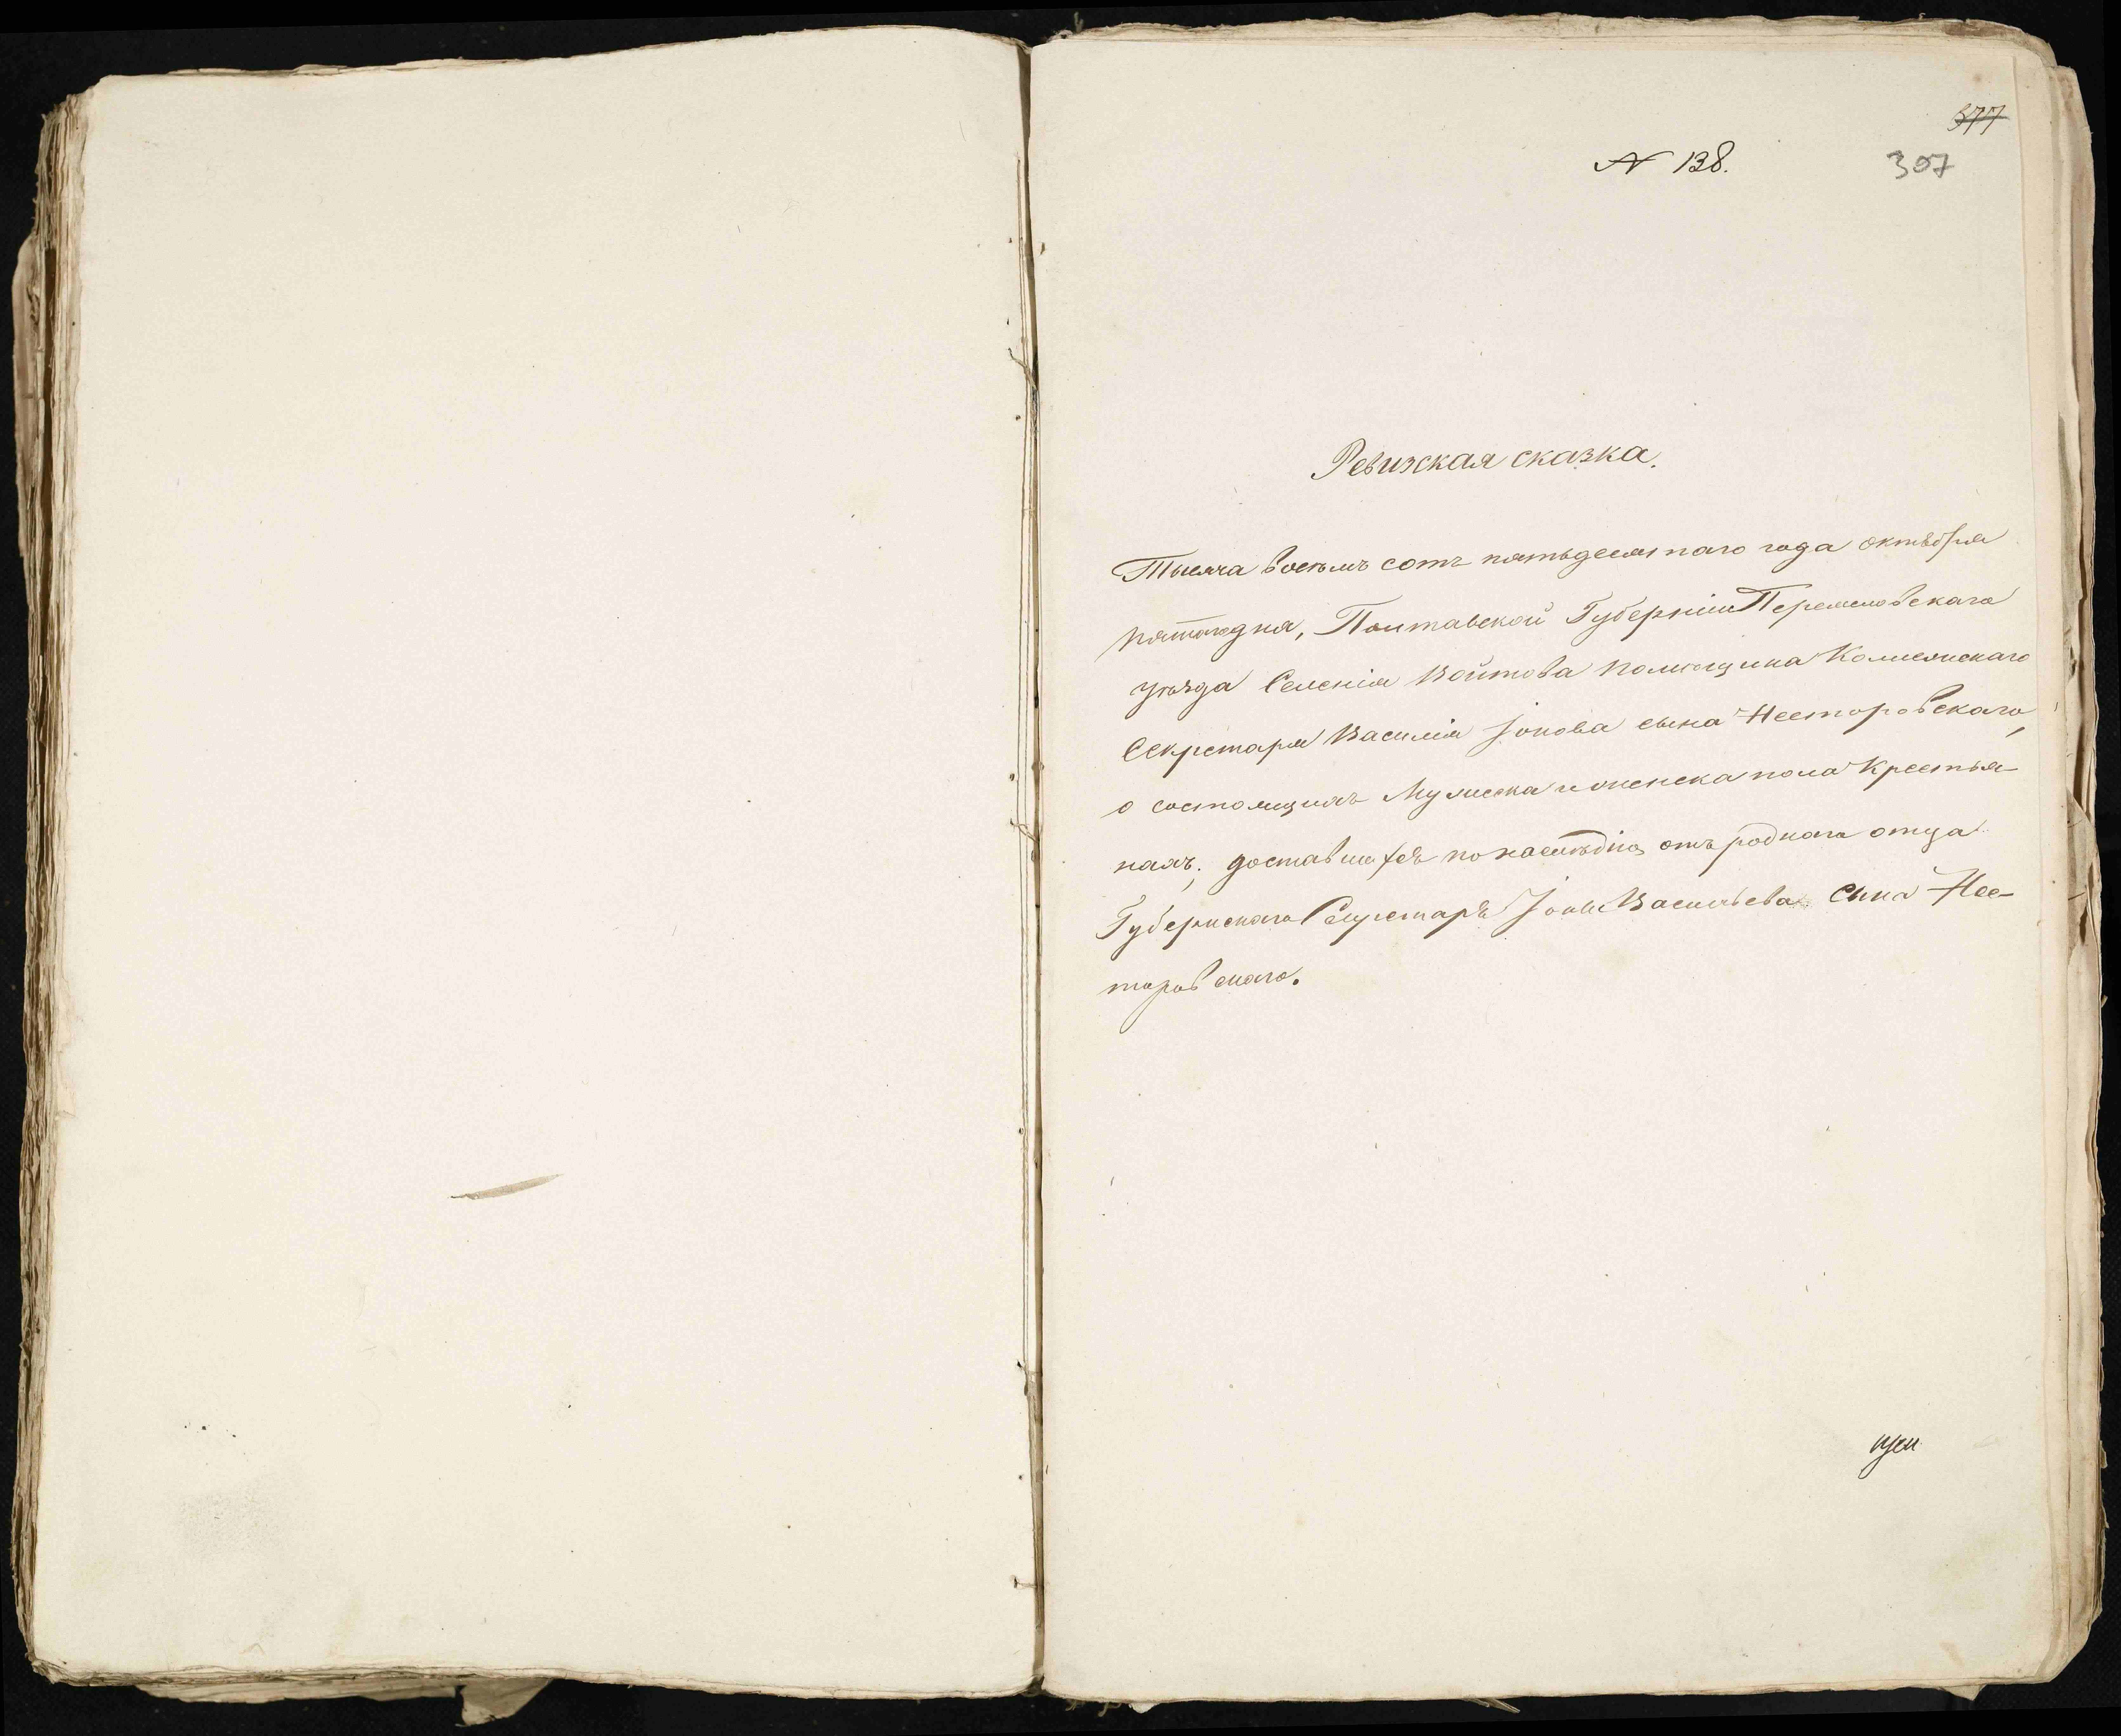 377
N 138.
307
Ревизская сказка.
Тысяча восемь сотъ пятьдесятаго года октября
пятаго дня, Полтавской Губерніи Переясловскаго
уѣзда Селенія Войтова помѣщика Колежскаго
Секретаря Василія Іонова сына Несторовскаго,
о состоящихъ Мужеска и женска пола Крестья-
нахъ, доставшихся по наслѣдію отъ роднаго отца
Губернскаго Секретаря Іоны Васильева Сына Нес-
торовскаго.